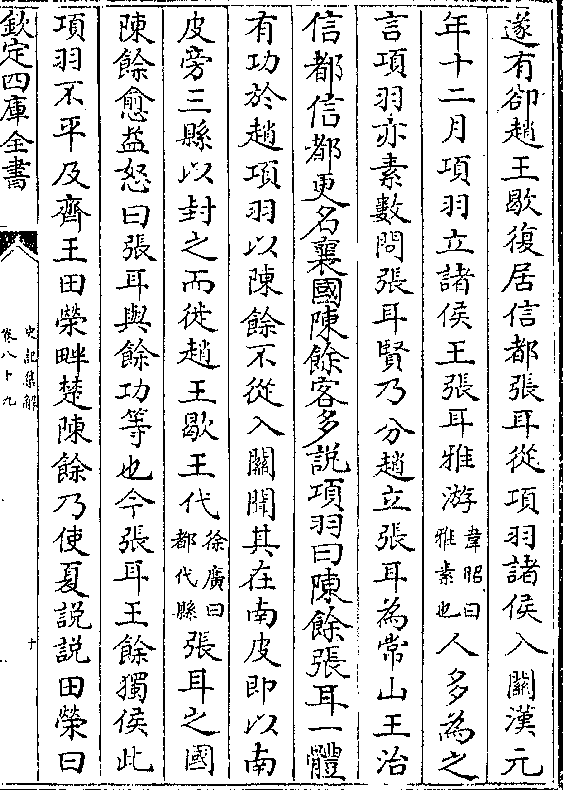 遂有卻趙王歇復居信都張耳從項羽諸侯入關漢元
年十二月項羽立諸侯王張耳雅游韋昭曰雅素也人多為之
言項羽亦素數聞張耳賢乃分趙立張耳為常山王治
信都信都更名襄國陳餘客多説項羽曰陳餘張耳一體
有功於趙項羽以陳餘不從入關聞其在南皮即以南
皮旁三縣以封之而徙趙王歇王代徐廣曰都代縣張耳之國
陳餘愈益怒曰張耳與餘功等也今張耳王餘獨侯此
項羽不平及齊王田榮畔楚陳餘乃使夏説説田榮曰
欽定四庫全書
史記集解
卷八十九
十